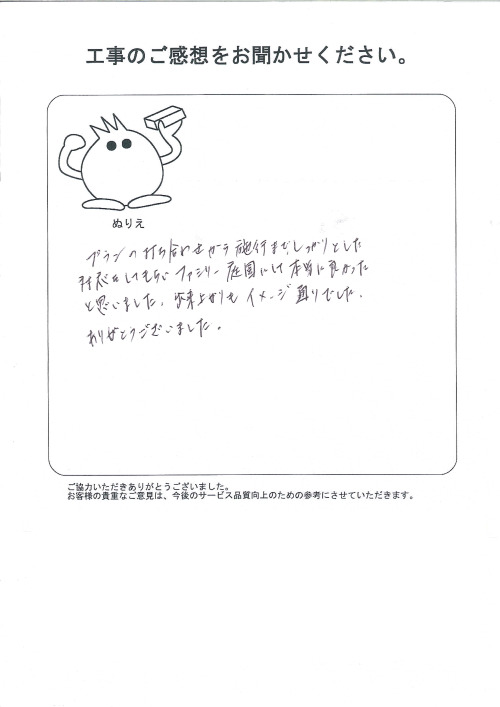 工事のご感想をお聞かせください。
ぬりえ
プランの打ち合わせから施行まで、しっかりとした
対応をしてもらい ファミリー庭園にして 本当に良かった
と思いました。出来上がりも イメージ通りでした。
ありがとうございました。
ご協力いただきありがとうございました。
お客様の貴重なご意見は、今後のサービス品質向上のための参考にさせていただきます。